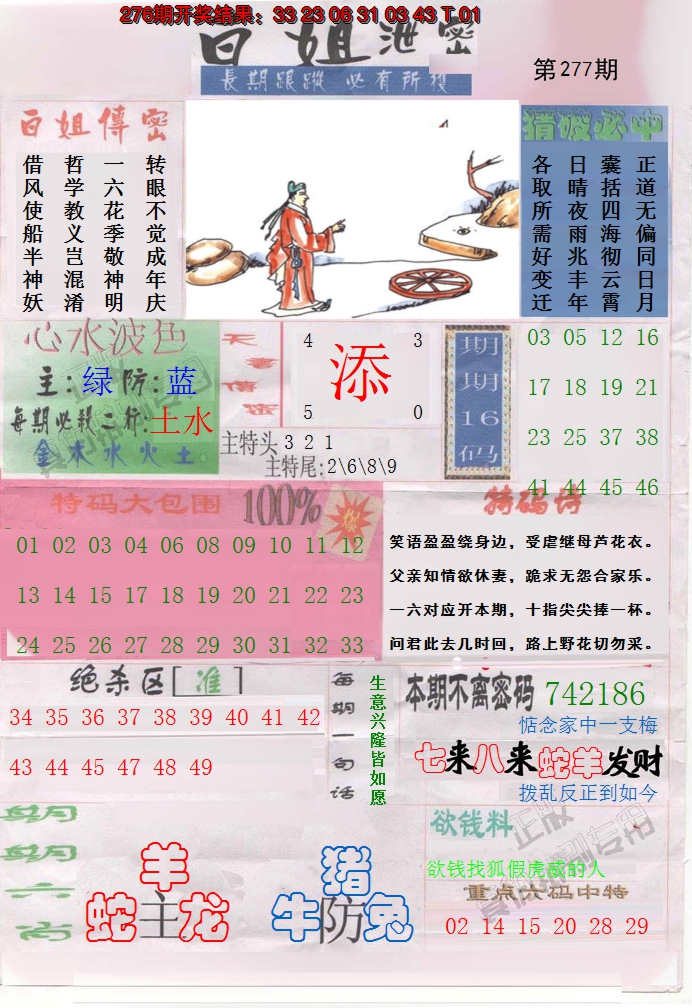 276期开奖结果：33 23 06 31 03 43 T 01
白姐泄密
第277期
長期跟蹤 必有所獲
白姐傳密
转眼不觉成年庆
一六花季敬神明
哲学教义岂混淆
借风使船半神妖
猜波必中
正道无偏同日月
囊括四海彻云霄
日晴夜雨兆丰年
各取所需好变迁
心水波色
主:绿 防:蓝
每期必殺二行:土水
金木水火土
天書信密
4 3
添
5 0
主特头 3 2 1
主特尾: 2\6\8\9
期期16码
03 05 12 16
17 18 19 21
23 25 37 38
41 44 45 46
特码大包围 100%
01 02 03 04 06 08 09 10 11 12
13 14 15 17 18 19 20 21 22 23
24 25 26 27 28 29 30 31 32 33
特码诗
笑语盈盈绕身边，受虐继母芦花衣。
父亲知情欲休妻，跪求无怨合家乐。
一六对应开本期，十指尖尖捧一杯。
问君此去几时回，路上野花切勿采。
绝杀区[准]
34 35 36 37 38 39 40 41 42
43 44 45 47 48 49
每期一句话
生意兴隆皆如愿
本期不离密码 742186
惦念家中一支梅
七来八来蛇羊发财
拨乱反正到如今
每期
每期
六
肖
羊
蛇主龙
猪
牛防兔
欲钱料
欲钱找狐假虎威的人
重点六码中特
02 14 15 20 28 29